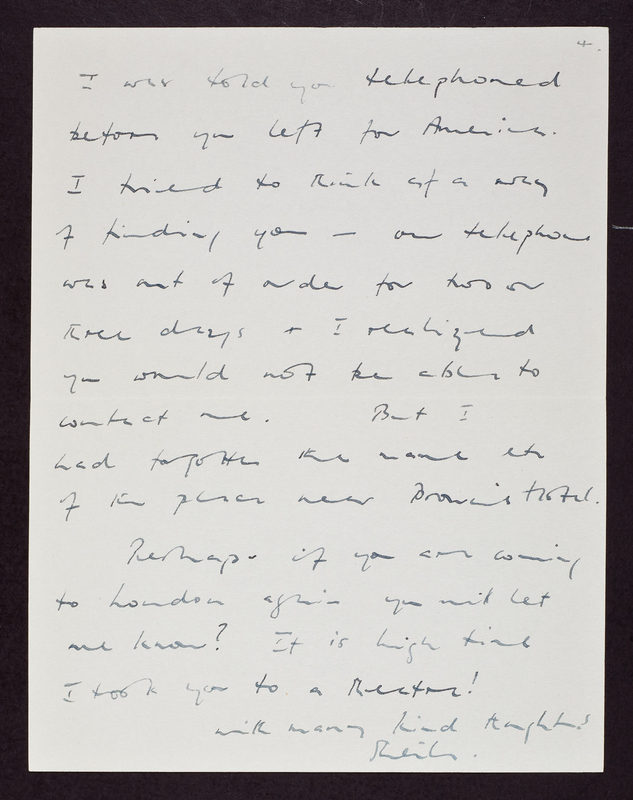 4.
I was told you telephoned
before you left for America.
I tried to think of a way
of finding you — our telephone
was out of order for two or
three days + I realized
you would not be able to
contact me. But I
had forgotten the name etc
of the place near Brown's Hotel.
Perhaps if you are coming
to London again you will let
me know? It is high time
I took you to a theatre!
with many kind thoughts
Sheila.